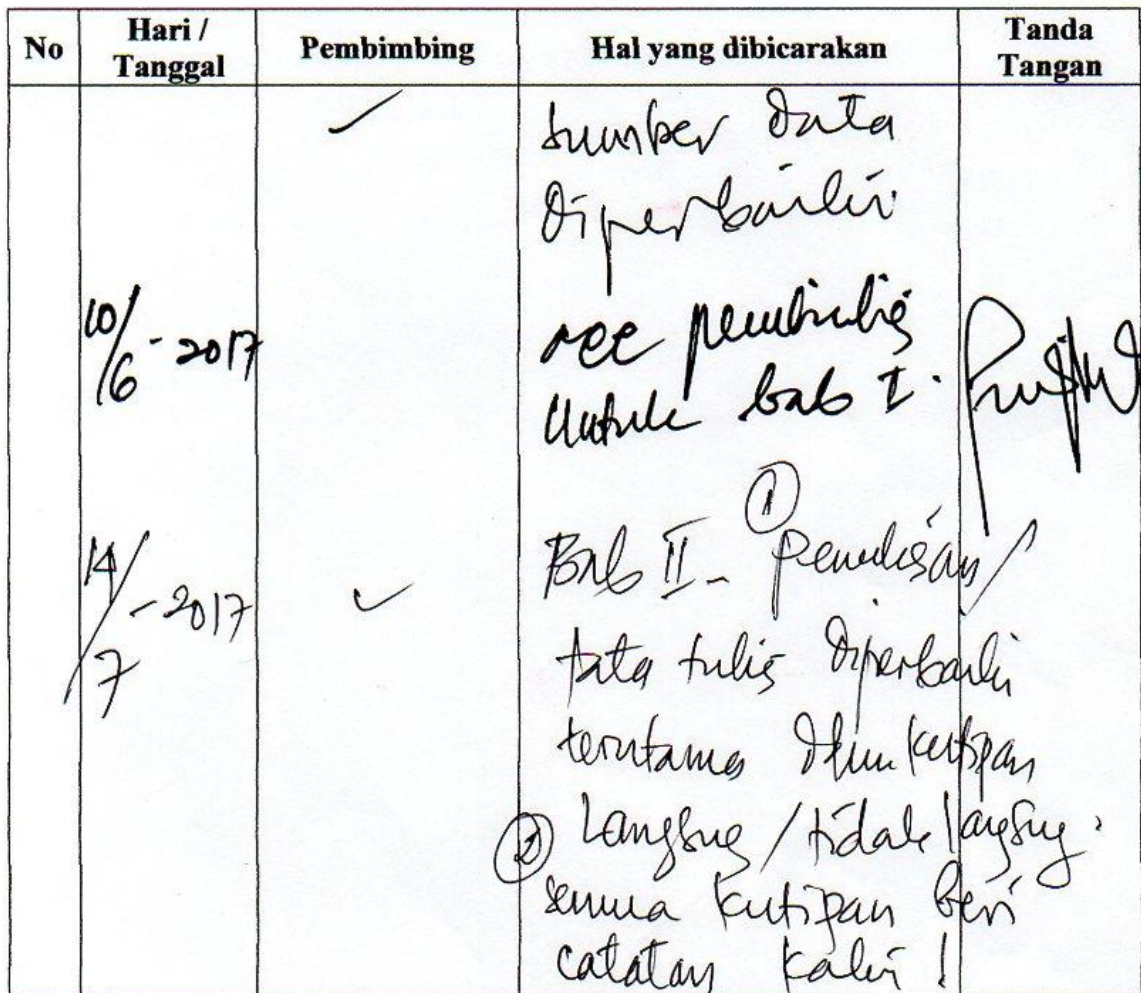 No Hari / Tanggal Pembimbing Hal yang dibicarakan Tanda Tangan
sumber data
diperbaiki
10/6 - 2017 acc pembimbing
untuk bab I.
①
14/7 - 2017 Bab II - Penulisan /
tata tulis diperbaiki
terutama dlm kutipan
② Langsung / tidak langsung.
semua kutipan beri
catatan kaki !